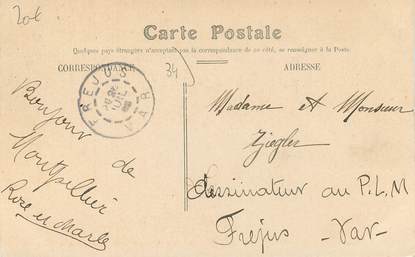 20€
Carte Postale
Quelques pays étrangers n'acceptent pas la correspondance de ce côté, se renseigner à la Poste.
CORRESPONDANCE
ADRESSE
34
FREJUS
VAR
Bonjour
de
Montpellier
Rose et Charles
Madame et Monsieur
Ziegler
Dessinateur au P.L.M
Fréjus - Var -